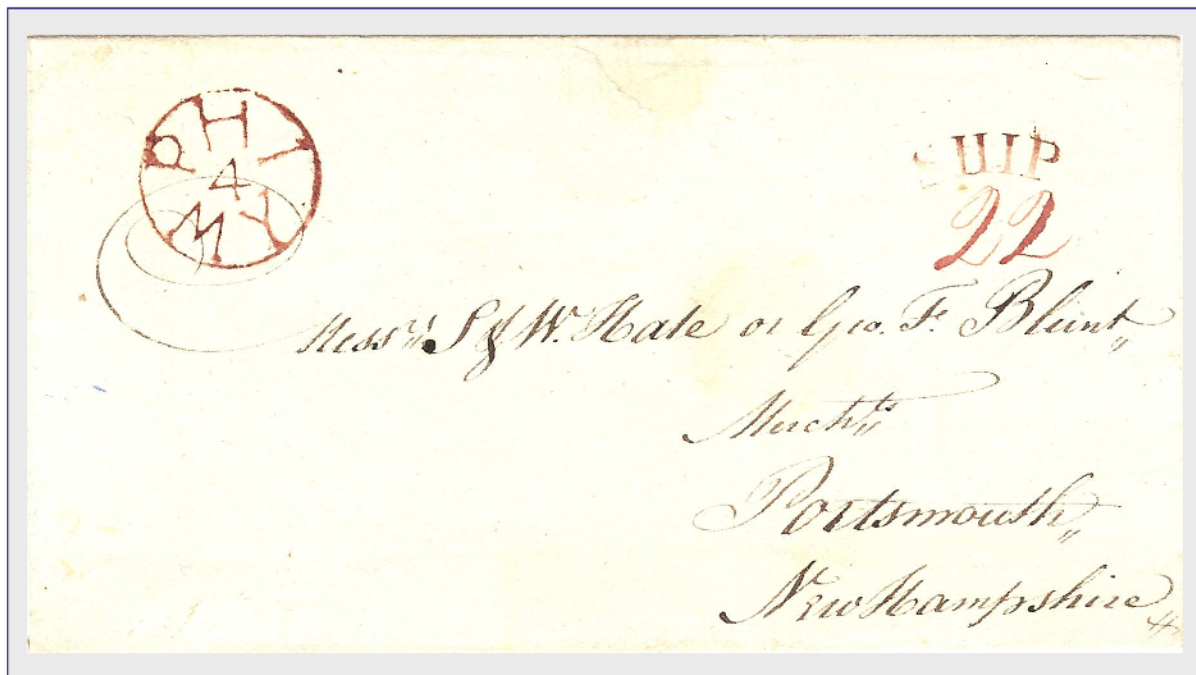 PHI
4
MY
SHIP
22
Mess.rs S & W. Hale or Geo. F. Blunt
Merch.ts
Portsmouth
New Hampshire